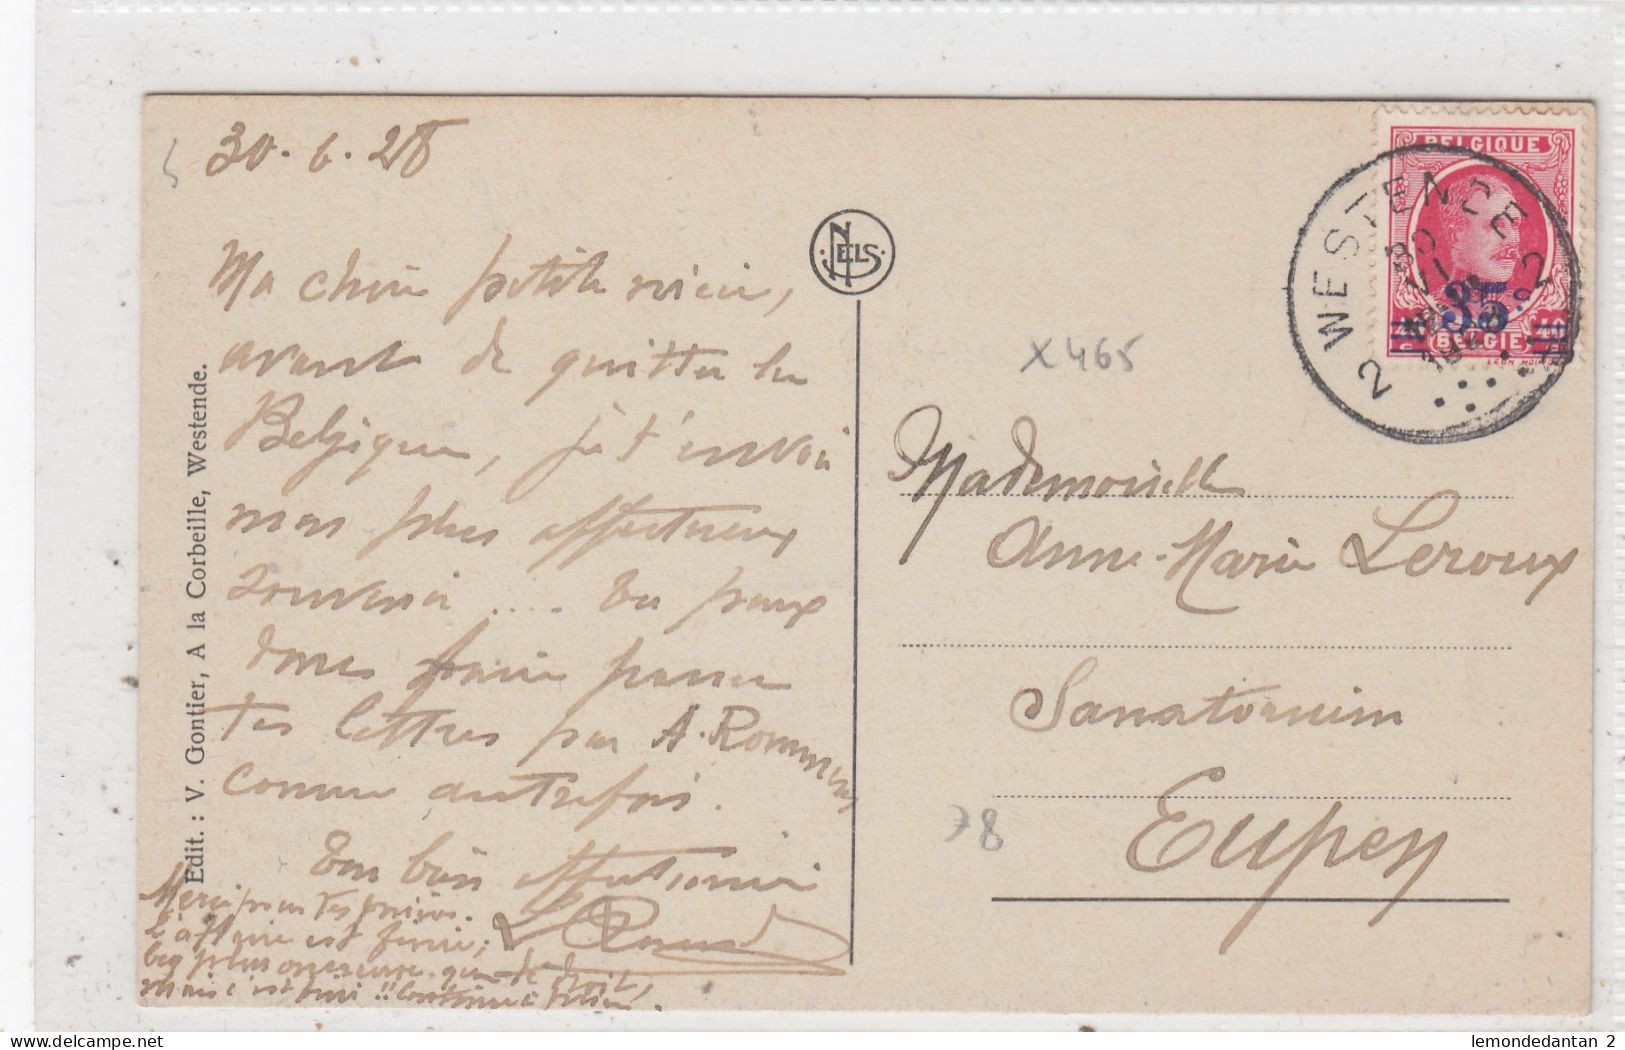 30.6.28
Ma chère petite nièce,
avant de quitter la
Belgique, je t'envoie
mes plus affectueux
souvenirs .... Tu peux
donc faire passer
tes lettres par A. Rommens
comme autrefois.
Ton bien affectionné
Merci pour tes prières.
L'affaire est finie,
plus onéreuse que de droit,
mais c'est fini !! Continue à prier.
Edit. : V. Gontier, A la Corbeille, Westende.
NELS
BELGIQUE
35c
BELGIË
2 WESTENDE 2
30
VI
X465
Mademoiselle
Anne-Marie Leroux
Sanatorium
78
Eupen
lemondedantan 2